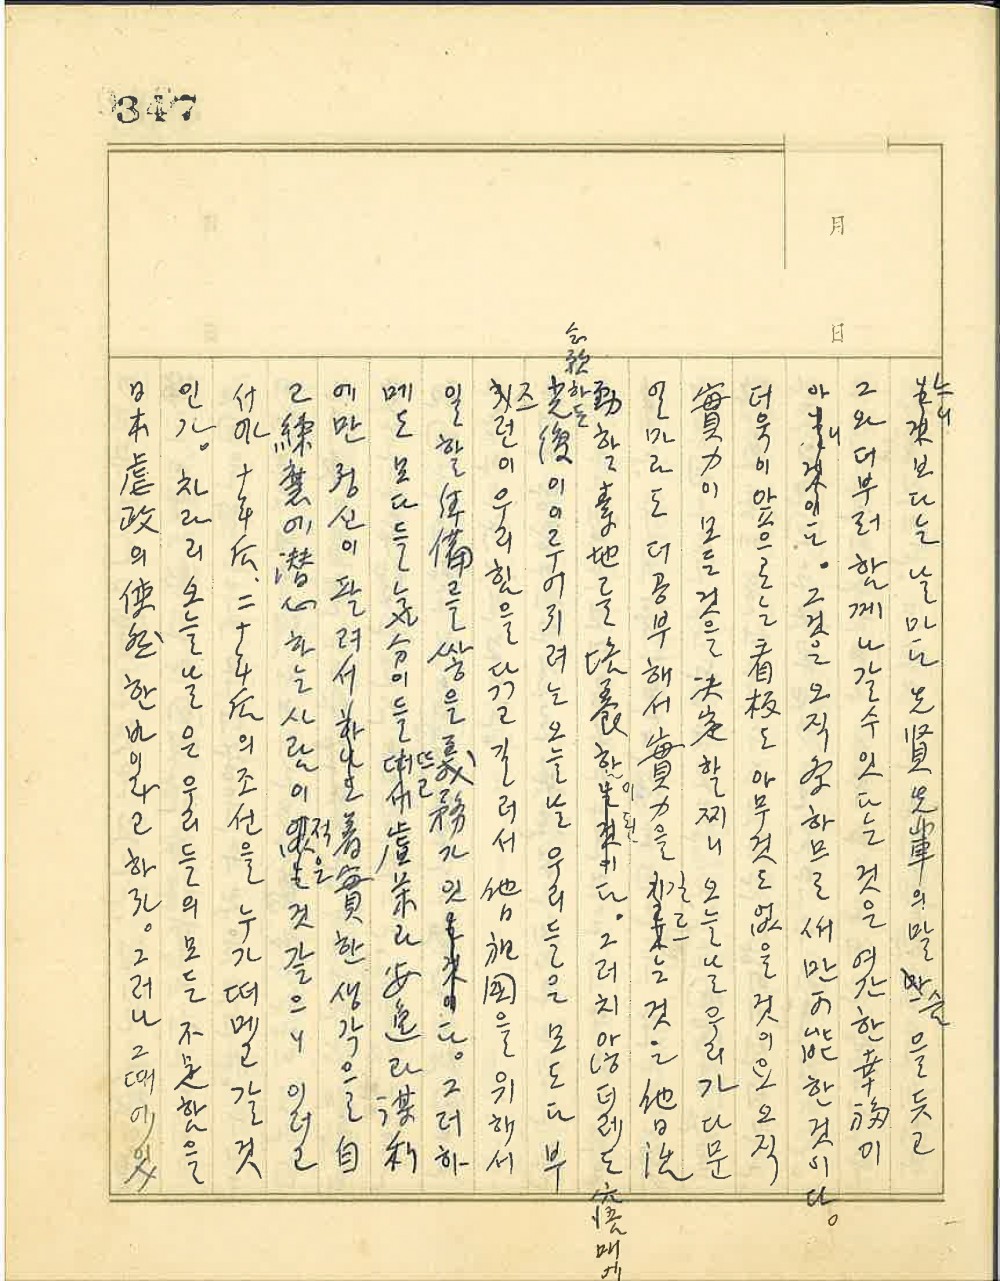 347
月
日
누니
것보다는 날마다 先賢先輩의 말슴을 듯고
그와 더부러 함께 나갈수 잇다는 것은 여간한 幸福이
아니다. 그것은 오직 함으로써만 可能한 것이다.
더욱이 앞으로는 看板도 아무것도 없을 것이요 오직
實力이 모든 것을 決定할찌니 오늘날 우리가 다문
얼마라도 더 공부해서 實力을 길르는 것은 他日 活
動할 素地를 培養함이 된다. 그러치 않더레도 매에
하든
光復이 이루어지려는 오늘날 우리들은 모도다 부
즈런이 우리 힘을 다끄고 길러서 他日 祖國을 위해서
일할 準備를 쌓을 義務가 잇다. 그러하
메도 모다들 氣分이 들뜨고 虛榮과 安逸과 謀利
에만 정신이 팔려서 着實한 생각으로 自
己 練磨에 潛心하는 사람이 적은 것 같으니 이러고
서야 十年後、二十年後의 조선을 누가 떠멜 갈 것
인가. 차라리 오늘날은 우리들의 모든 不足함을
日本 虐政의 使然한 바이라고 하자. 그러나 그때에 잇